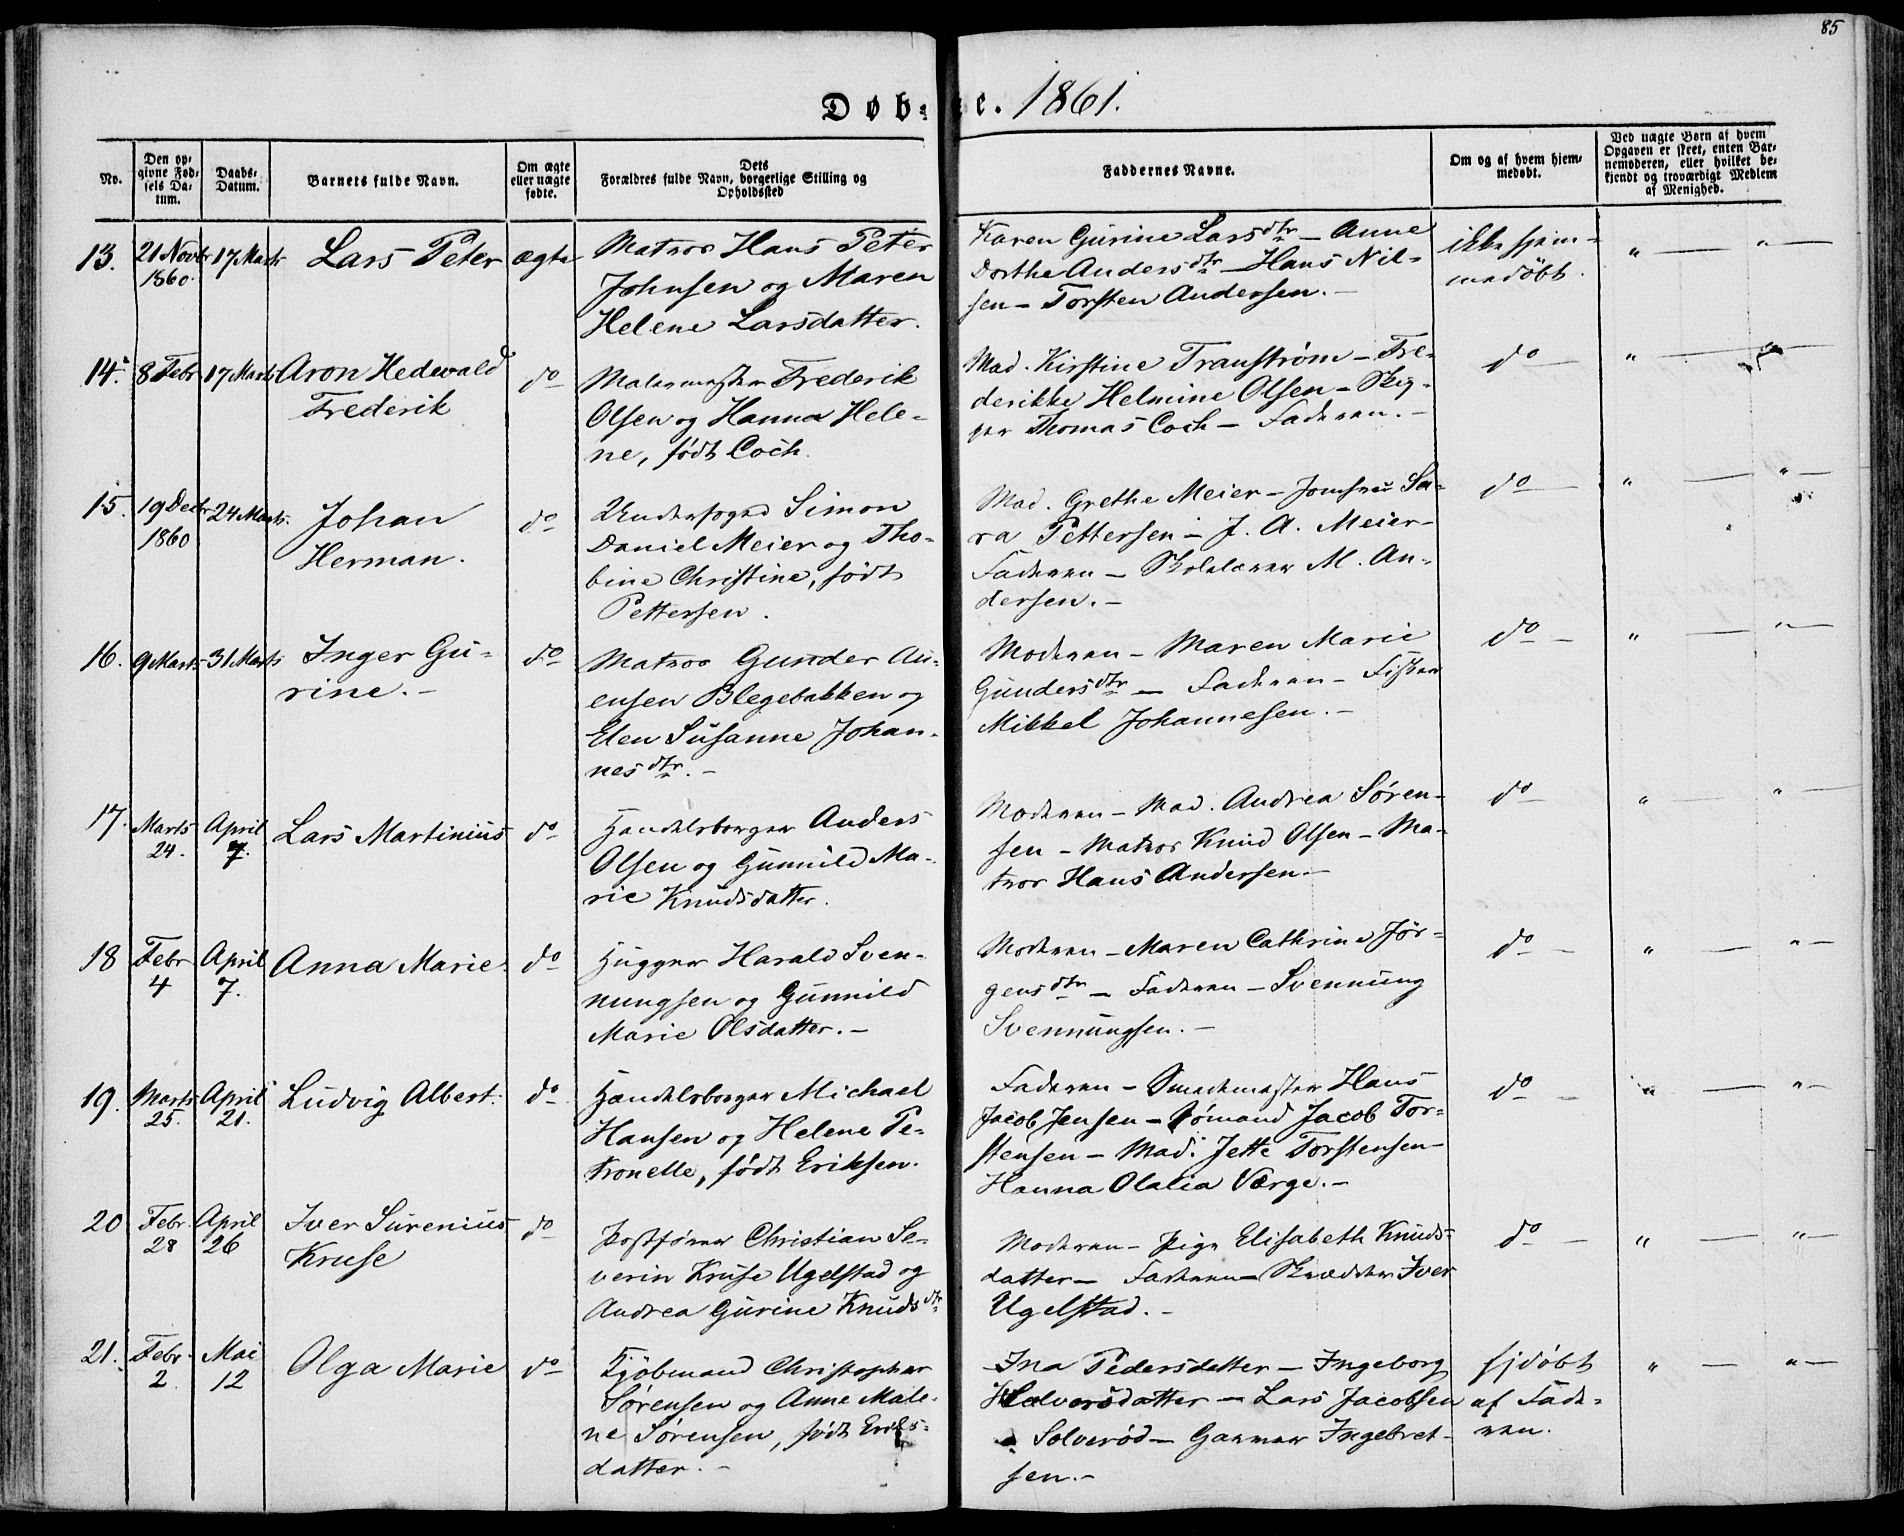 85
Døb- te. 1861.
No.
Den op-
givne Fød-
sels Da-
tum.
Daabs-
Datum.
Barnets fulde Navn.
Om ægte
eller uægte
fødte.
Dets
Forældres fulde Navn, borgerlige Stilling og
Opholdssted
Faddernes Navne.
Om og af hvem hjem-
medøbt.
Ved uægte Børn af hvem
Opgaven er skeet, enten Bar-
nemoderen, eller hvilket be-
kjendt og troværdigt Medlem
af Menighed.
13.
21 Novbr
1860.
17 Marts
Lars Peter
ægte
Matros Hans Peter
Johnsen og Maren
Helene Larsdatter.
Karen Gurine Larsdtr - Anne
Dorthe Andersdtr - Hans Nil-
sen - Torsten Andersen. -
ikke hjem-
medöbt.
" — " —
14.
8 Febr
17 Marts
Aron Hedevald
Frederik
do
Malermester Frederik
Olsen og Hanna Hele-
ne, født Coch.
Mad. Kirstine Tranström - Fre-
derikke Helmine Olsen - Skip-
per Thomas Coch - Faderen. -
do
" —
15.
19 Decbr
1860
24 Marts.
Johan
Herman.
do
Underfoged Simon
Daniel Meier og Tho-
bine Christine, født
Pettersen.
Mad. Grethe Meier - Jomfru Sa-
ra Pettersen - J. A. Meier -
Faderen - Skolelærer M. An-
dersen. -
do
" — " —
16.
9 Marts
31 Marts
Inger Gu-
rine. -
do
Matros Gunder Au-
ensen Blegebakken og
Elen Susanne Johan-
nesdtr. -
Moderen - Maren Marie
Gundersdtr - Faderen - Fisker
Mikkel Johannesen. -
do -
" — " —
17.
Marts
24.
April
7.
Lars Martinius
do
Handelsborger Anders
Olsen og Gunnild Ma-
rie Knudsdatter.
Moderen - Mad. Andrea Søren-
sen - Matros Knud Olsen - Ma-
tros Hans Andersen. -
do
" " —
18
Febr
4
April
7.
Anna Marie.
do
Hugger Harald Sven-
nungsen og Gunnild
Marie Olsdatter. -
Moderen - Maren Cathrine Jør-
gensdtr - Faderen - Svennung
Svennungsen. -
do -
" — " —
19.
Marts
25.
April
21.
Ludvig Albert.
do
Handelsborger Michael
Hansen og Helene Pe-
tronelle, født Eriksen.
Faderen - Smedemester Hans
Jacob Jensen - Sømand Jacob Tor-
stensen - Mad. Jette Torstensen -
Hanna Olalia Værge. -
do -
" — " —
20
Febr.
28
April
26
Iver Surenius
Kruse
do
Postfører Christian Se-
verin Kruse Ugelstad og
Andrea Gurine Knudsdtr
Moderen - Pige Elisabeth Knuds-
datter - Faderen - Skrædder Iver
Ugelstad. -
do -
" — " —
21.
Febr.
2
Mai
12
Olga Marie
do
Kjöbmand Christopher
Sørensen og Anne Male-
ne Sørensen, født Eriks-
datter. -
Ina Pedersdatter - Ingeborg
Halvorsdatter - Lars Jacobsen
Solverød - Garver Ingebret-
sen. -
hjdøbt
af Fade-
ren.
" — " —